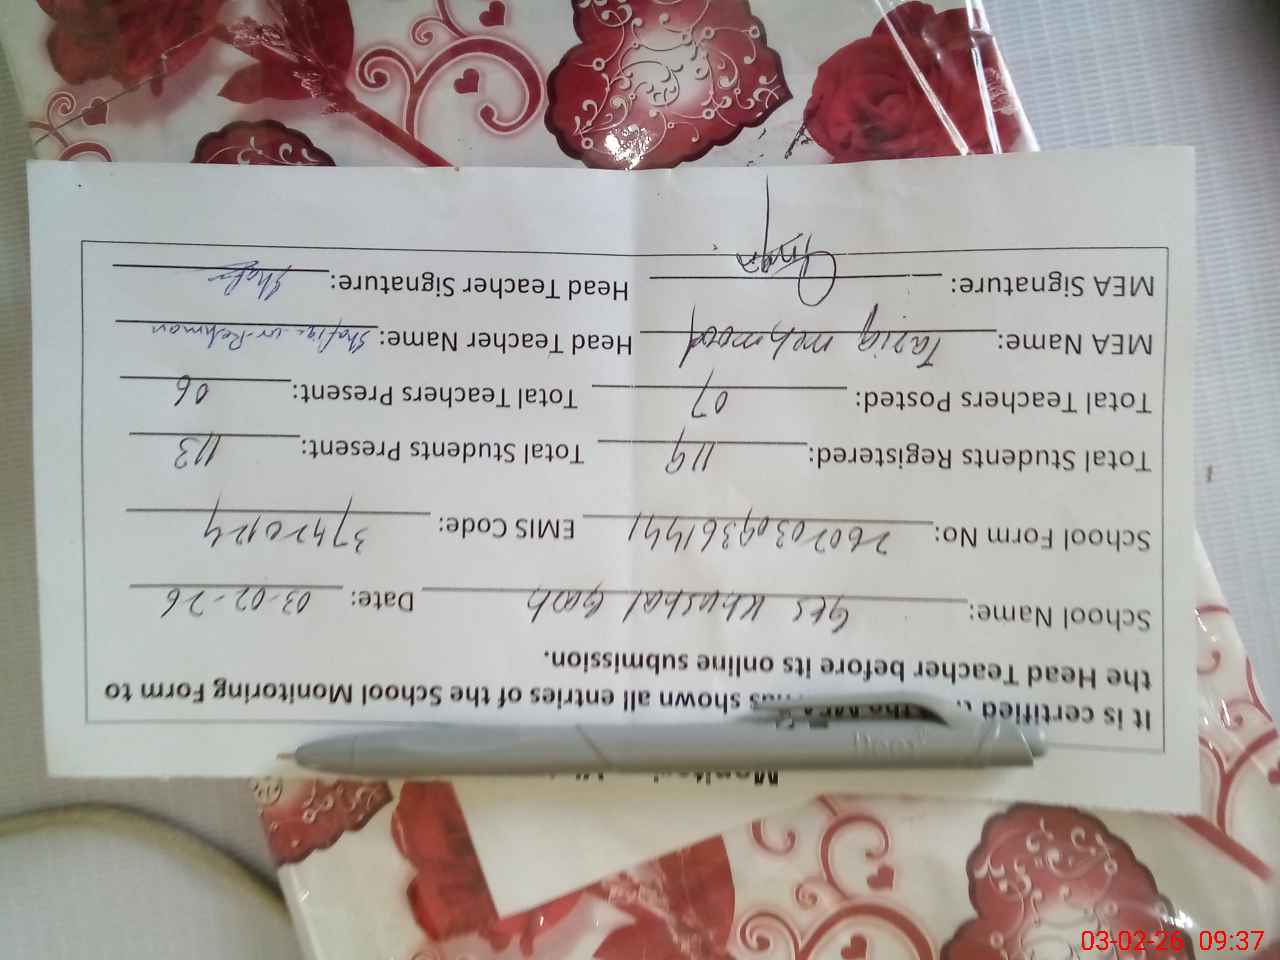 It is certified the MEA has shown all entries of the School Monitoring Form to
the Head Teacher before its online submission.
School Name: GES Khushal Garh Date: 03-02-26
School Form No: EMIS Code:
Total Students Registered: 119 Total Students Present: 113
Total Teachers Posted: 07 Total Teachers Present: 06
MEA Name: Tariq mehmood Head Teacher Name: Shafiq-ur-Rehman
MEA Signature: Head Teacher Signature:
03-02-26 09:37